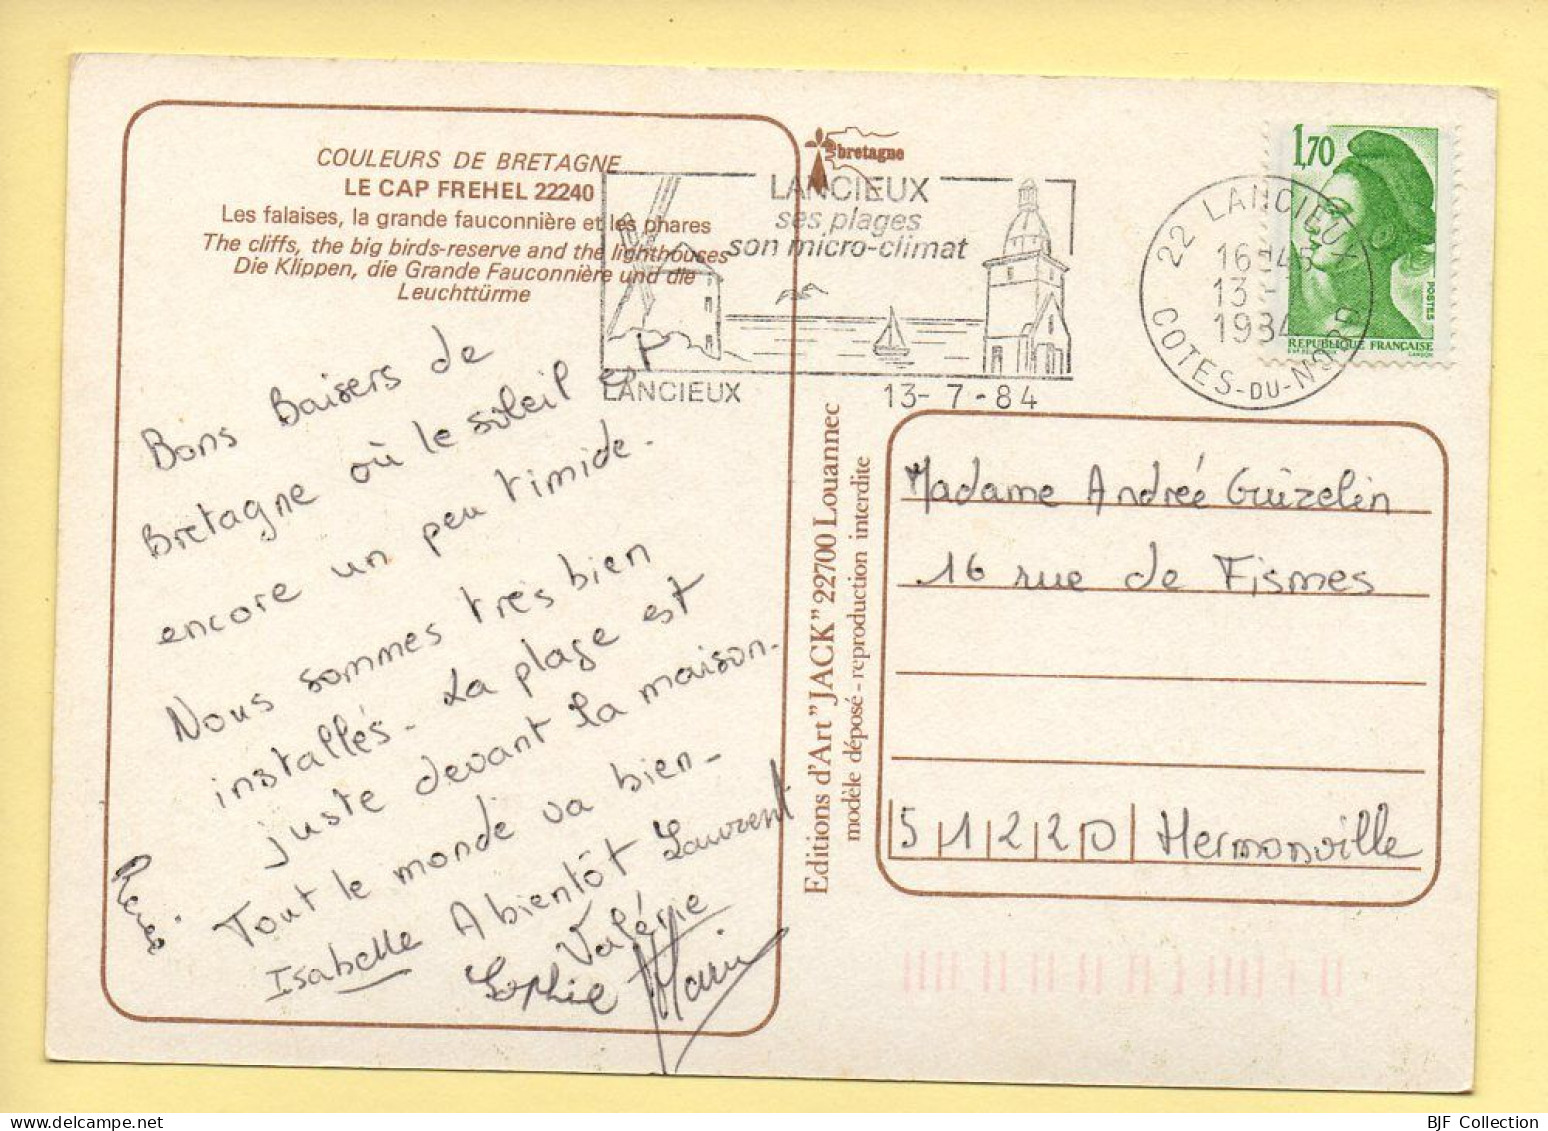 COULEURS DE BRETAGNE
LE CAP FREHEL 22240
Les falaises, la grande fauconnière et les phares
The cliffs, the big birds-reserve and the lighthouses
Die Klippen, die Grande Fauconnière und die
Leuchttürme
bretagne
LANCIEUX
ses plages
son micro-climat
LANCIEUX
13-7-84
22 LANCIEUX
16H45
13-
1984
COTES-DU-NORD
1,70
POSTES
REPUBLIQUE FRANÇAISE
GANDON
Bons Baisers de
Bretagne où le soleil est
encore un peu timide.
Nous sommes très bien
installés. La plage est
juste devant la maison.
Tout le monde va bien.
A bientôt Laurent
Isabelle
Valérie
Sophie
Editions d'Art "JACK" 22700 Louannec
modèle déposé - reproduction interdite
Madame Andrée Guizelin
16 rue de Fismes
51220 Hermonville
BJF Collection